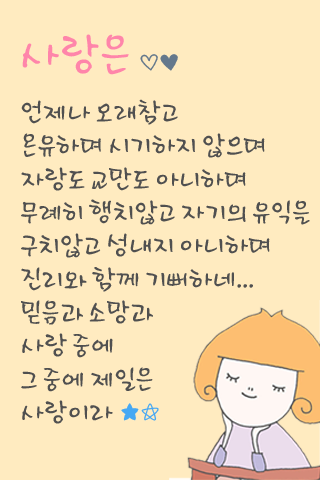 사랑은 ♡♥
언제나 오래참고
온유하며 시기하지 않으며
자랑도 교만도 아니하며
무례히 행치않고 자기의 유익을
구치않고 성내지 아니하며
진리와 함께 기뻐하네...
믿음과 소망과
사랑 중에
그 중에 제일은
사랑이라 ★☆